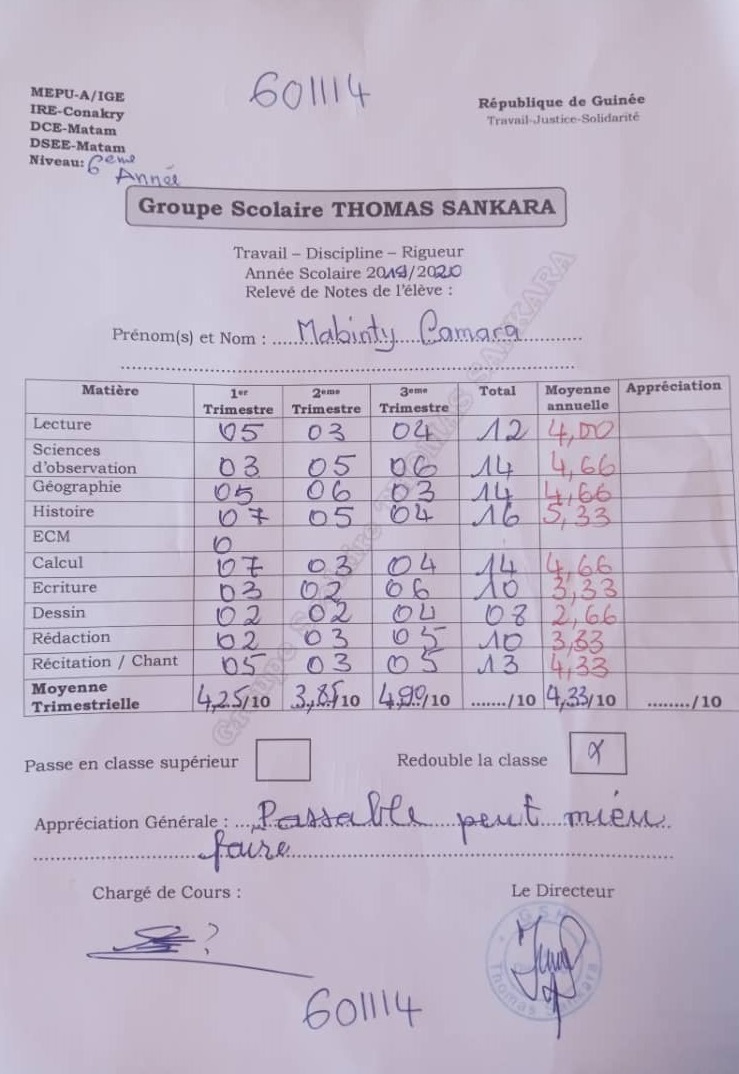 601114
MEPU-A/IGE
IRE-Conakry
DCE-Matam
DSEE-Matam
Niveau: 6eme
Année
République de Guinée
Travail-Justice-Solidarité
Groupe Scolaire THOMAS SANKARA
Travail – Discipline – Rigueur
Année Scolaire 2019/2020
Relevé de Notes de l'élève :
Prénom(s) et Nom : Mabinty Camara
Matière 1er Trimestre 2eme Trimestre 3eme Trimestre Total Moyenne annuelle Appréciation
Lecture 05 03 04 12 4,00
Sciences d'observation 03 05 06 14 4,66
Géographie 05 06 03 14 4,66
Histoire 07 05 04 16 5,33
ECM 0
Calcul 07 03 04 14 4,66
Ecriture 03 02 06 10 3,33
Dessin 02 02 04 08 2,66
Rédaction 02 03 05 10 3,33
Récitation / Chant 05 03 05 13 4,33
Moyenne Trimestrielle 4,25/10 3,85/10 4,90/10 ......./10 4,33/10 ......../10
Passe en classe supérieur
Redouble la classe x
Appréciation Générale : Passable peut mieu
faire
Chargé de Cours :
?
Le Directeur
Thomas Sankara
601114
Groupe Scolaire THOMAS SANKARA